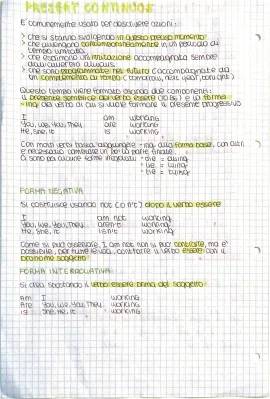 PRESENT CONTINUOS
È comunemente usato per descrivere azioni:
> che si stanno svolgendo in questo preciso momento
> che avvengono contemporaneamente in un periodo di
tempo limitato.
> che esprimono un'irritazione accompagnata sempre
dall'avverbio always.
> che sono programmate nel futuro (accompagnate da
un complemento di tempo (tomorrow, next year, tonight)
Questo tempo viene formato usando due componenti:
il presente semplice del verbo essere (to be) e la forma
-ing del verbo di cui si vuole formare il presente progressivo
I am working
you, we, you, they are working
He, she, it is working
Con molti verbi basta aggiungere -ing alla forma base, con altri
è necessario cambiare un po' la parte finale.
Ci sono poi alcune forme irregolari: • die = dying
• lie = lying
• tie = tying
FORMA NEGATIVA
Si costruisce usando not (o n't) dopo il verbo essere
I am not working
You, we, you, they aren't working
He, she, it isn't working
Come si può osservare, I am not non si può contrarre, ma è
possibile, per tutte le voci, contrarre il verbo essere con il
pronome soggetto
FORMA INTERROGATIVA
Si crea spostando il verbo essere prima del soggetto
Am I working
Are you, we, you, they working
Is she, he, it working